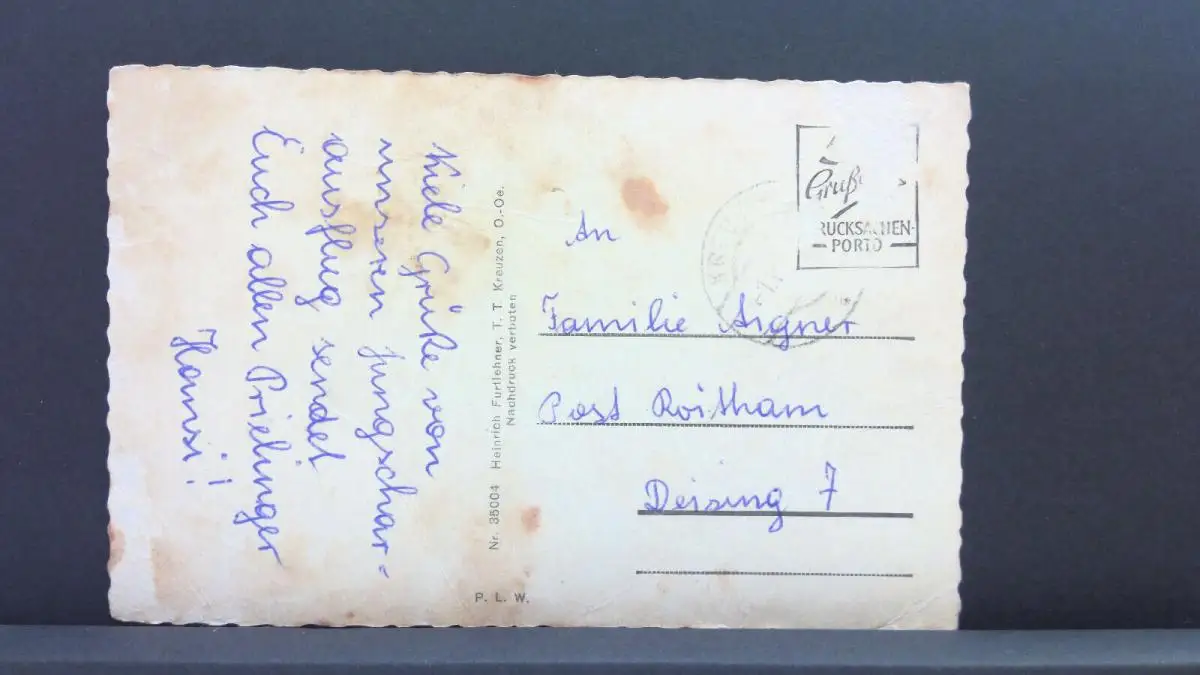 Viele Grüße von
unseren Jungschar=
ausflug sendet
Euch allen Prielinger
Hansi!
Nr. 35004 Heinrich Furtlehner, T. T. Kreuzen, O.-Oe.
Nachdruck verboten
P. L. W.
Gruß
RUCKSACHEN-
PORTO
An
Familie Aigner
Post Roitham
Deising 7